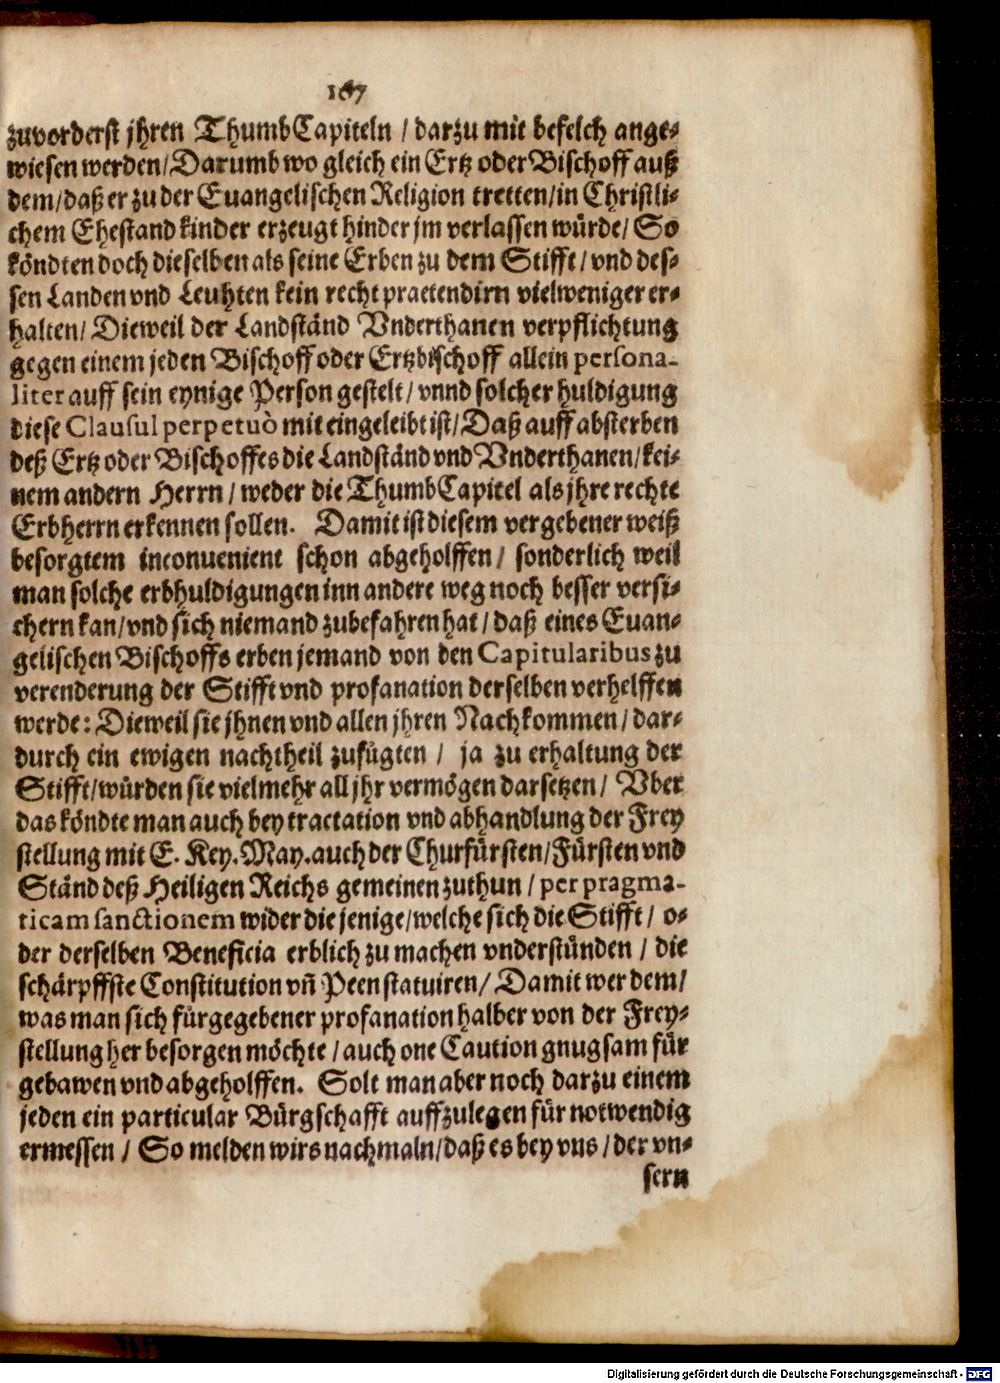 167
zuvorderst jhren ThumbCapiteln / darzu mit befelch ange-
wiesen werden/Darumb wo gleich ein Ertz oder Bischoff auß
dem/daß er zu der Euangelischen Religion tretten/in Christli-
chem Ehestand kinder erzeugt hinder jm verlassen würde/ So
köndten doch dieselben als seine Erben zu dem Stifft/ vnd des-
sen Landen vnd Leuhten kein recht praetendirn vielweniger er-
halten/ Dieweil der Landständ Vnderthanen verpflichtung
gegen einem jeden Bischoff oder Ertzbischoff allein persona-
liter auff sein eynige Person gestelt/ vnnd solcher huldigung
diese Clausul perpetuò mit eingeleibt ist/ Daß auff absterben
deß Ertz oder Bischoffes die Landständ vnd Vnderthanen/kei-
nem andern Herrn / weder die ThumbCapitel als jhre rechte
Erbherrn erkennen sollen. Damit ist diesem vergebener weiß
besorgtem inconuenient schon abgeholffen/ sonderlich weil
man solche erbhuldigungen inn andere weg noch besser versi-
chern kan/vnd sich niemand zubefahren hat/ daß eines Euan-
gelischen Bischoffs erben jemand von den Capitularibus zu
verenderung der Stifft vnd profanation derselben verhelffen
werde: Dieweil sie jhnen vnd allen jhren Nachkommen/ dar-
durch ein ewigen nachtheil zufügten / ja zu erhaltung der
Stifft/würden sie vielmehr all jhr vermögen darsetzen/ Vber
das köndte man auch bey tractation vnd abhandlung der Frey
stellung mit E. Key. May. auch der Churfürsten/Fürsten vnd
Ständ deß Heiligen Reichs gemeinen zuthun / per pragma-
ticam sanctionem wider die jenige/welche sich die Stifft/ o-
der derselben Beneficia erblich zu machen vnderstünden / die
schärpffste Constitution vñ Peen statuiren/ Damit wer dem/
was man sich fürgegebener profanation halber von der Frey-
stellung her besorgen möchte / auch one Caution gnugsam für
gebawen vnd abgeholffen. Solt man aber noch darzu einem
jeden ein particular Bürgschafft auffzulegen für notwendig
ermessen / So melden wirs nachmaln/daß es bey vns / der vn-
sern
Digitalisierung gefördert durch die Deutsche Forschungsgemeinschaft - DFG